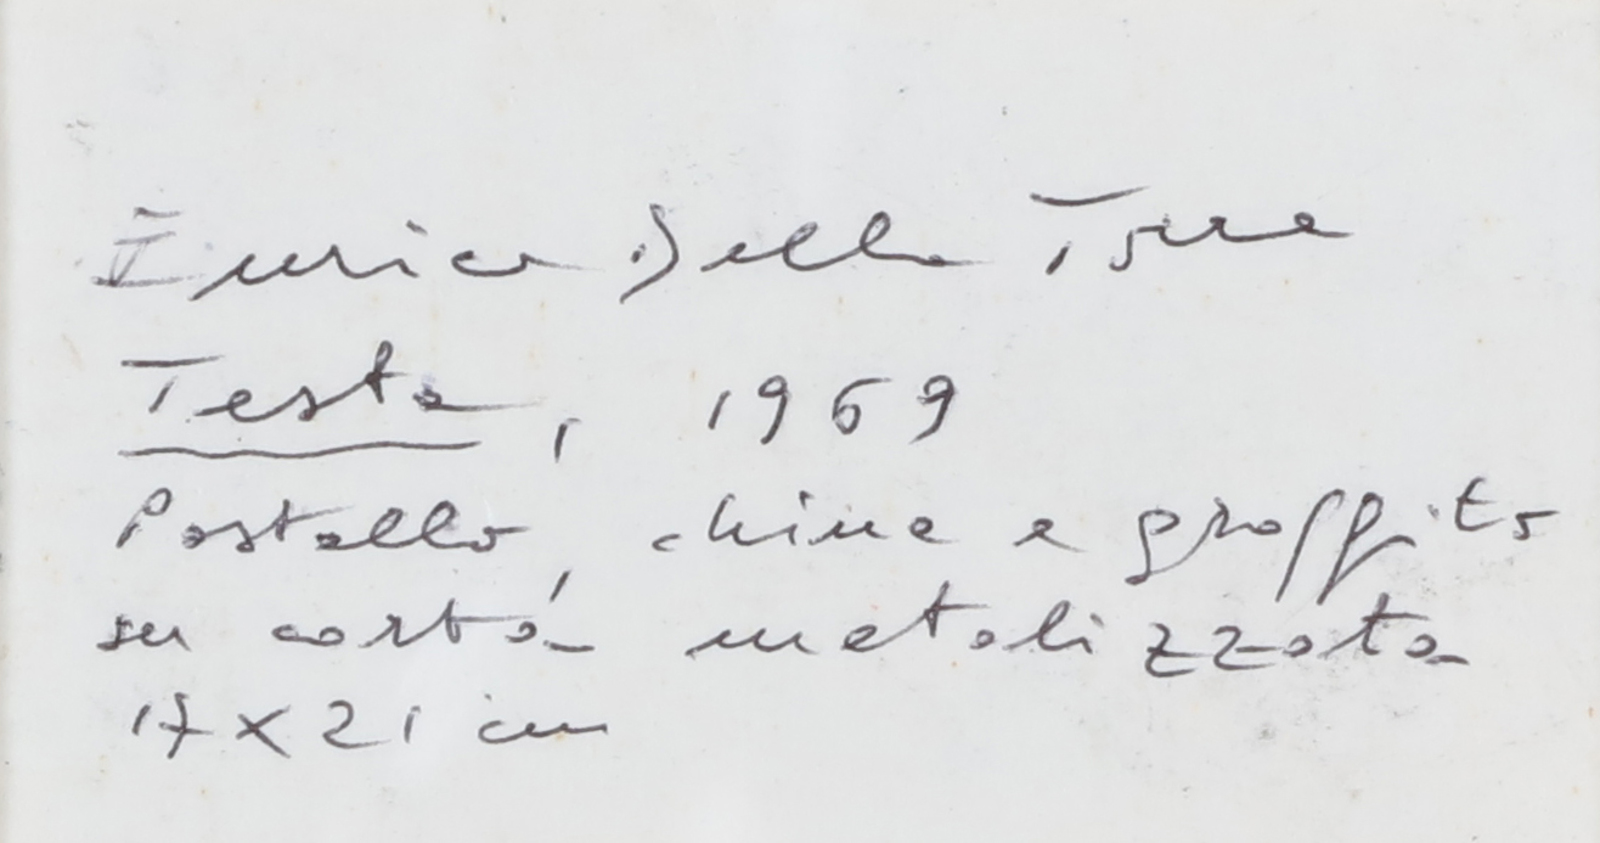 Enrico Della Torre
Testa, 1969
Pastello, china e graffito
su carta metalizzata
17 x 21 cm